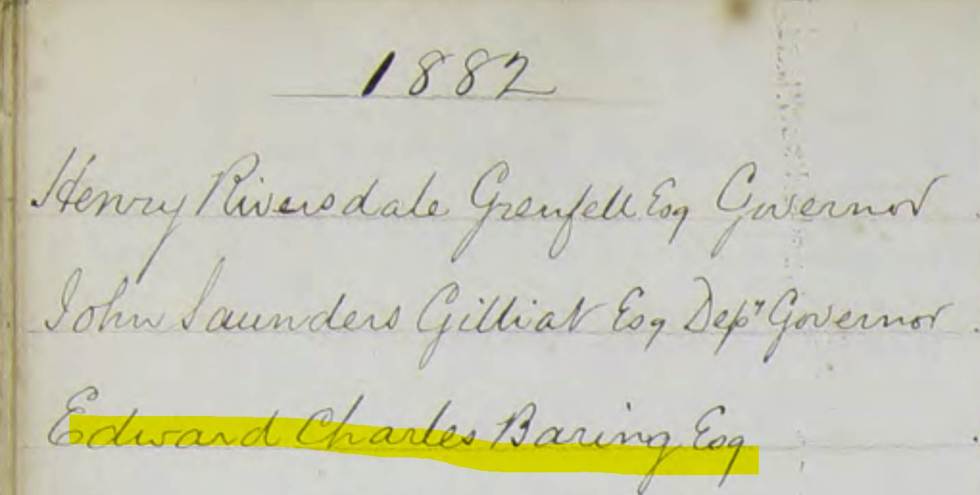 1882
Henry Riversdale Grenfell Esq Governor
John Saunders Gilliat Esq Depy Governor
Edward Charles Baring Esq